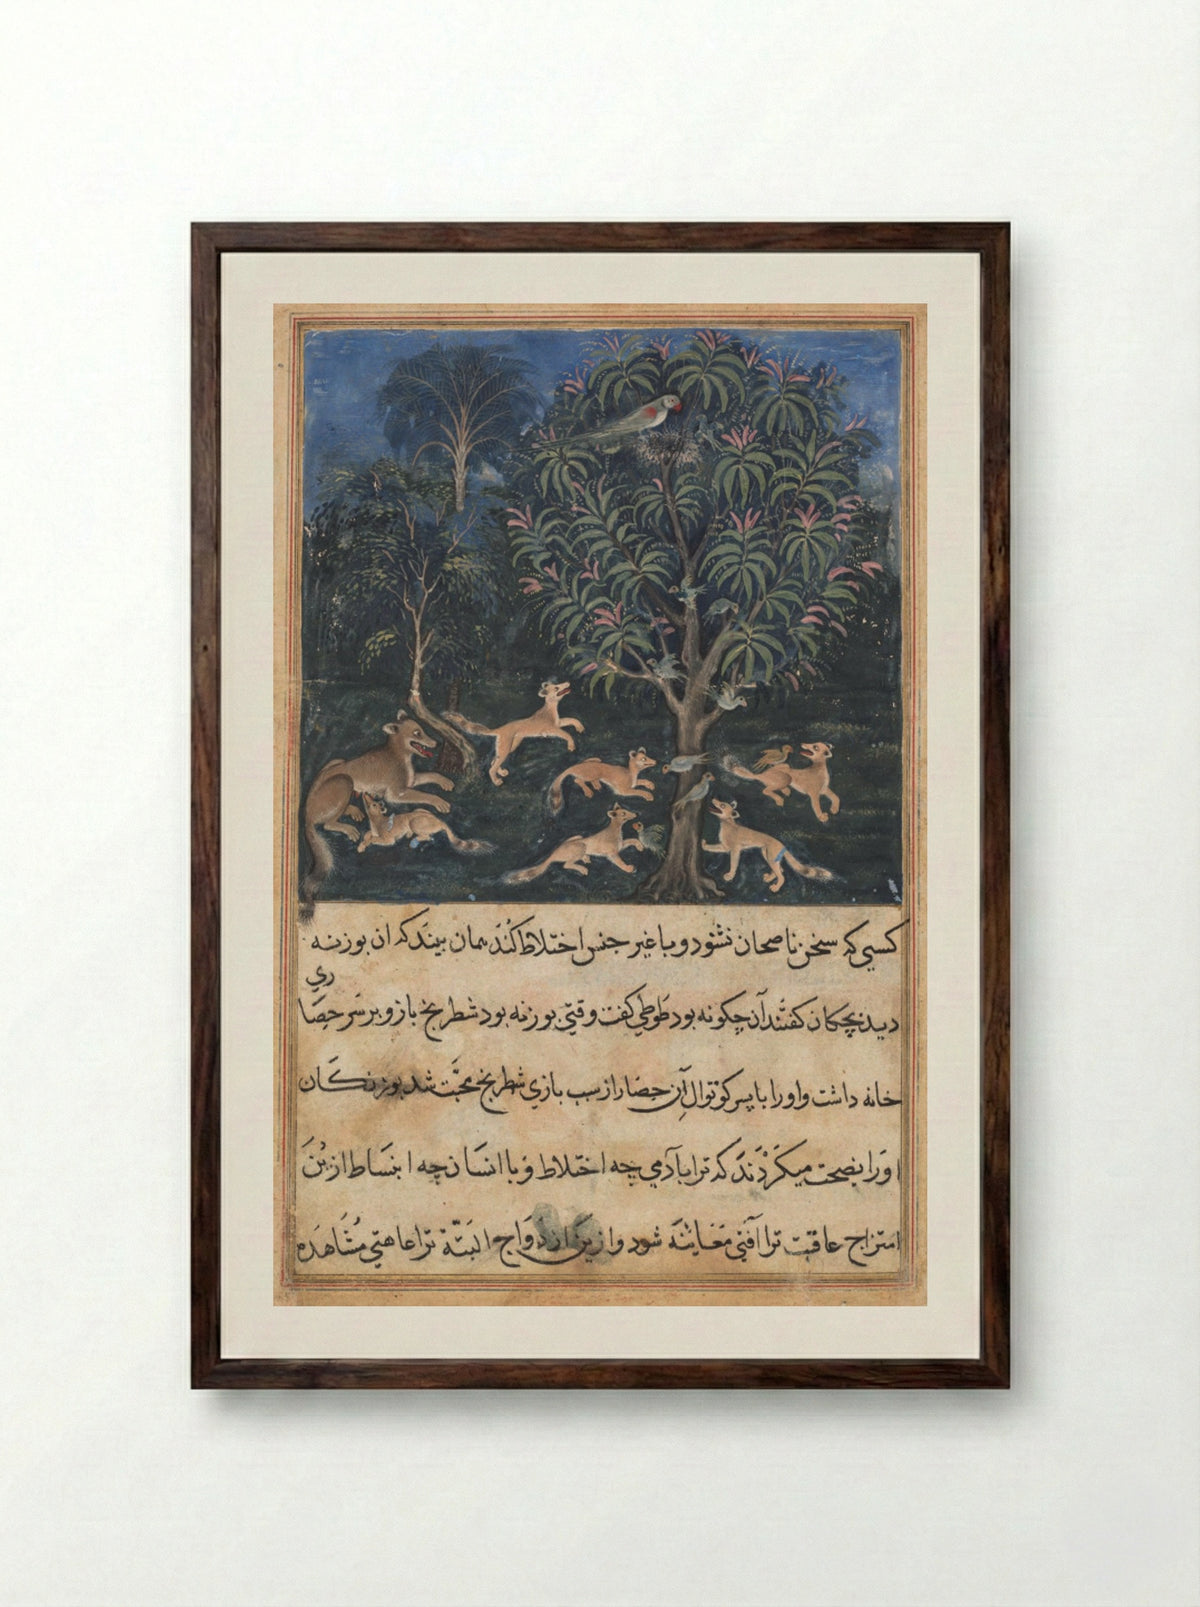 کسی که سخن ناصحان نشنود و با غیر جنس اختلاط کند همان بیند که ان بوزنه
دید بچکان کفتند آن چکونه بود طوطی کفت وقتی بوزنه بود شطرنج باز و بر سر حصاری
خانه داشت و او را با پسر کوتوال آن حصار از سبب بازی شطرنج محبت شد بوزنکان
او را نصیحت میکردند که ترا با آدمی چه اختلاط و با انسان چه انبساط ازین
امتزاج عاقبت ترا آفتی معاینه شود و ازین ازدواج البته ترا عاهتی مشاهده